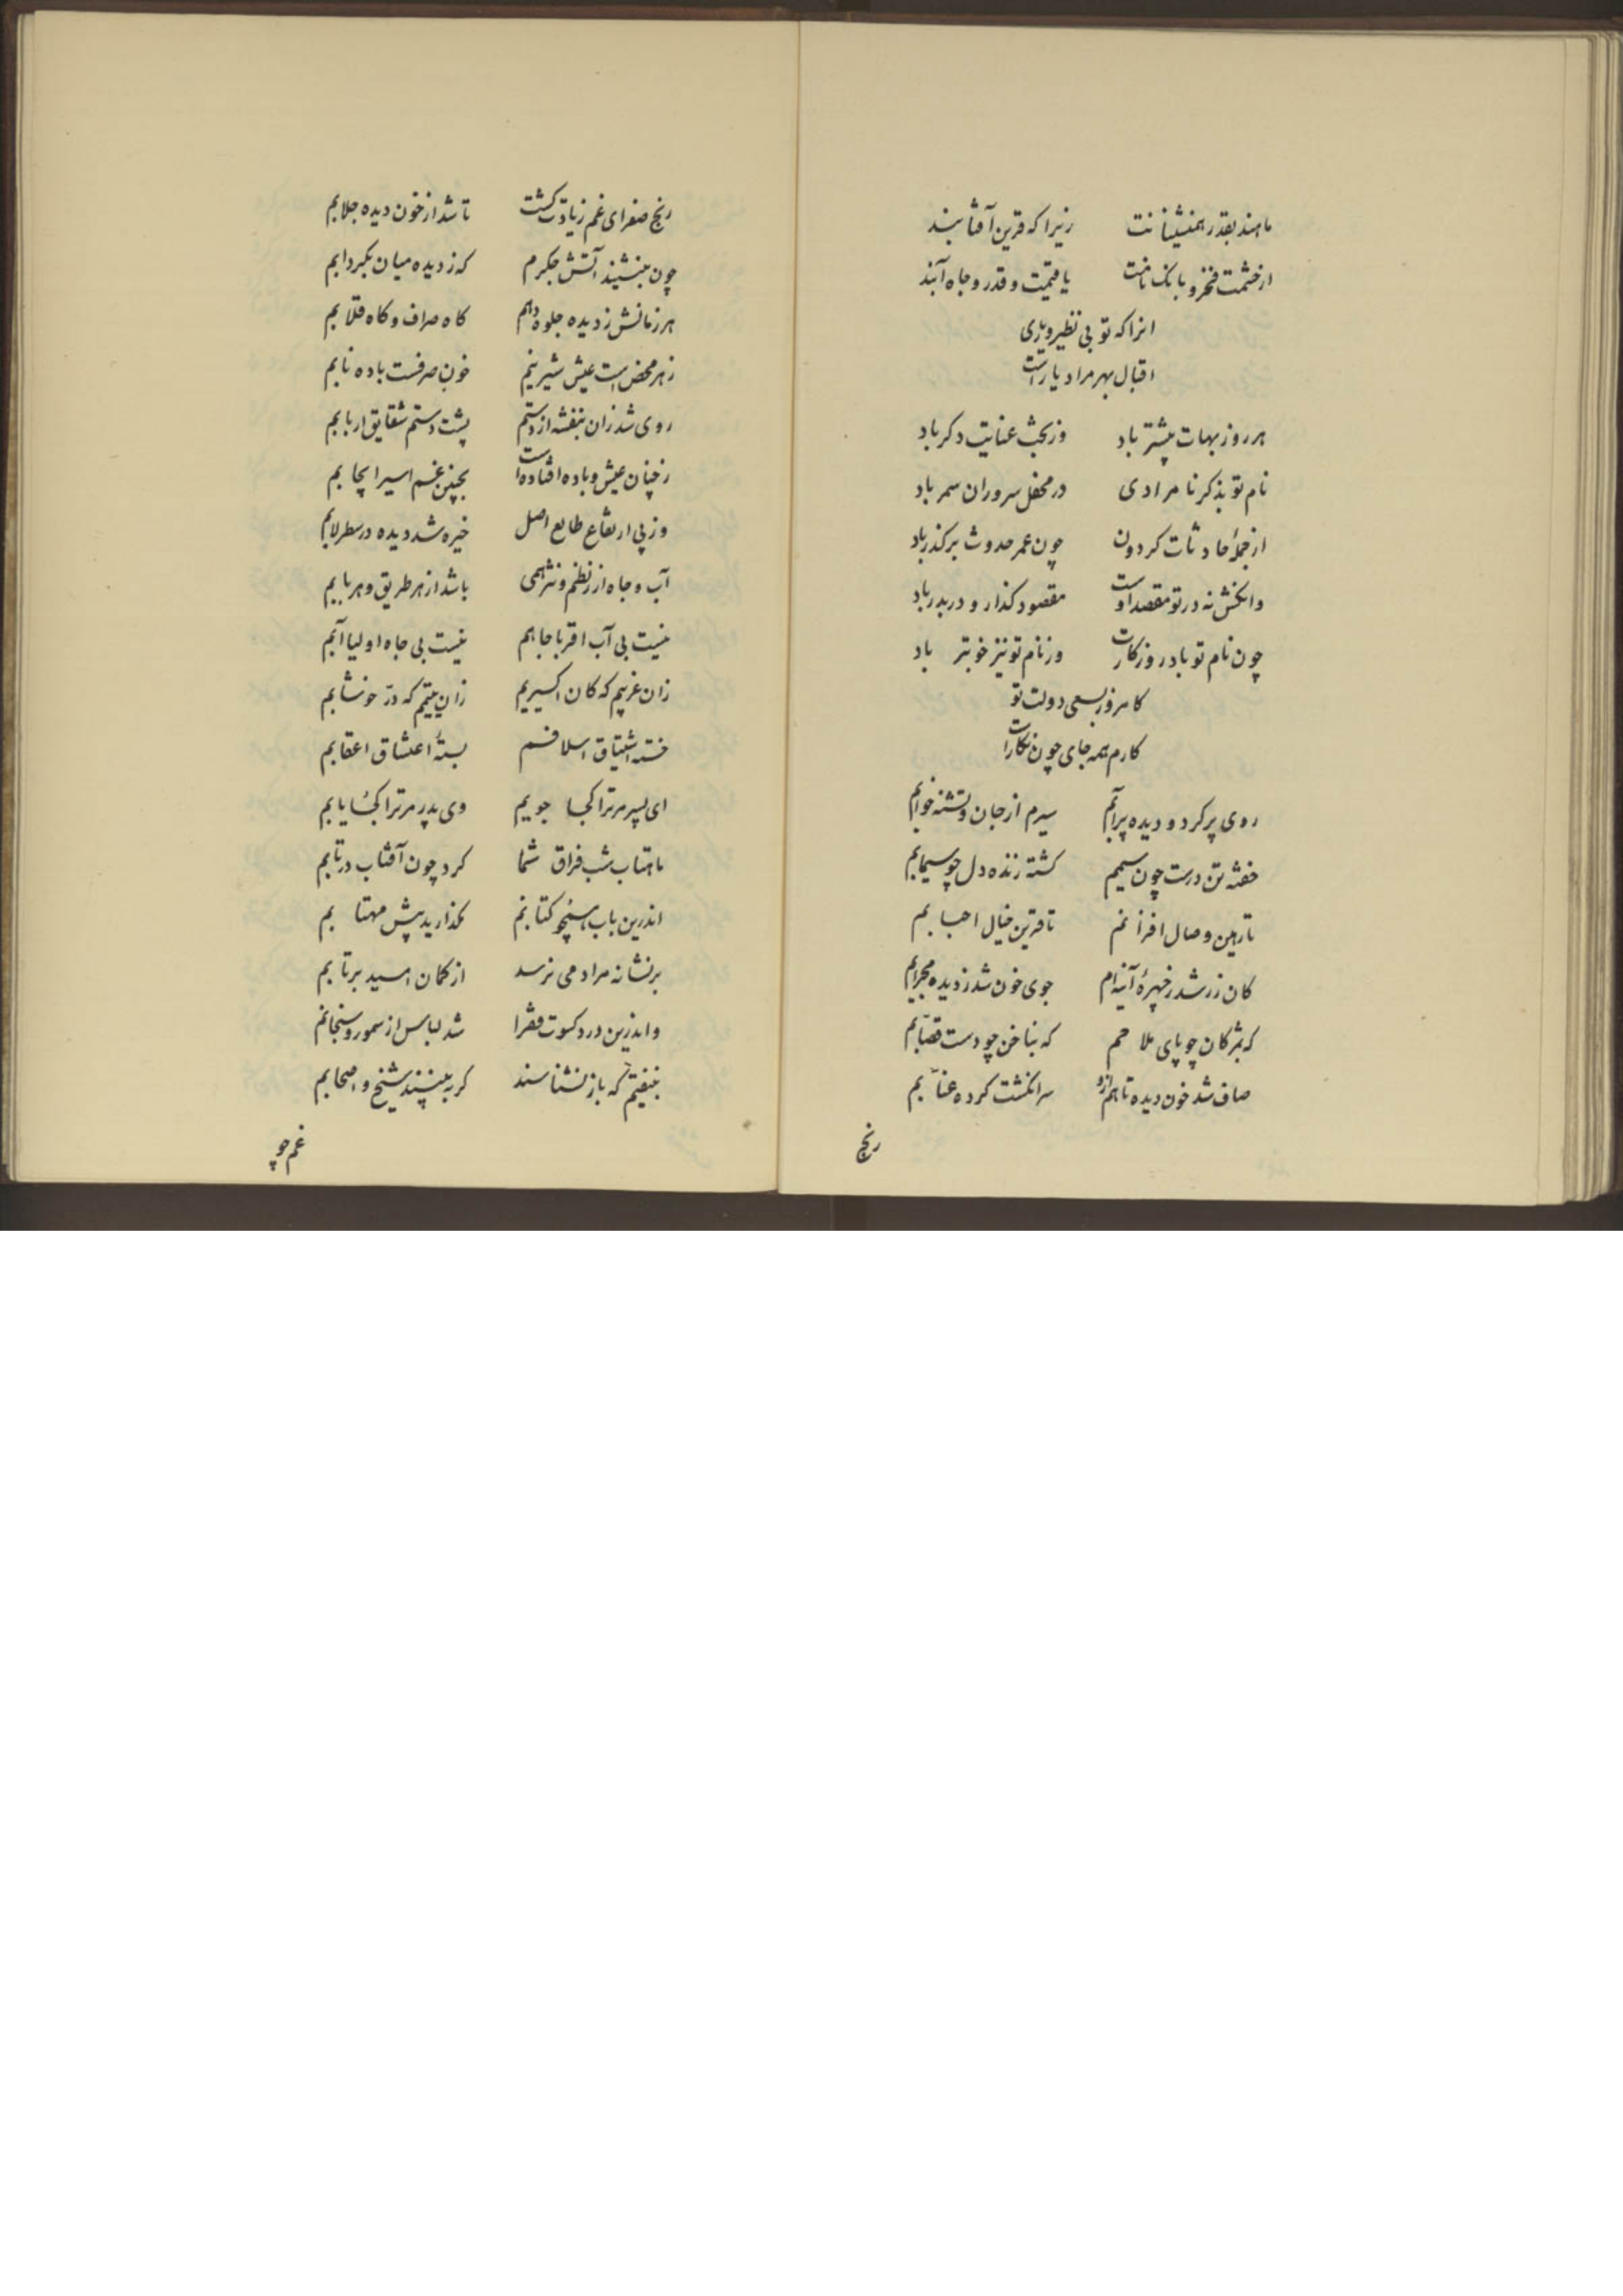 ماهند بقدر همنشینانت زیرا که قرین آفتابند
از حشمت فخر و بانک نامت یا قیمت و قدر و جاه آبند
انرا که تو بی نظیر و یاری
اقبال بهر مراد یارست
هر روز بهات پیشتر باد وز بخت عنایت دکر باد
نام تو بذکر نامرادی در محفل سروران سمر باد
از جملهٔ حادثات کردون چون عمر حدوث بر کذر باد
وانکش نه در تو مقصد اوست مقصود کذار و در بدر باد
چون نام تو باد روزکارت وز نام تو نیز خوبتر باد
کامروز بسعی دولت تو
کارم همه جای چون نکارست
روی پر کرد و دیده پر آبم سیرم از جان و تشنه خوابم
خفته تن درست چون سیمم کشته زنده دل چو سیمابم
تا رهین وصال اقرانم تا قرین خیال احبابم
کان زر شد ز چهرهٔ آینه‌ام جوی خون شد ز دیده محرابم
که بمژکان چو پای ملاحم که بناخن چو دست قصّابم
صاف شد خون دیده تا هم ازو سر انکشت کرده عنّابم
رنج
رنج صفرای غم زیادت کشت تا شد از خون دیده جلابم
چون بنشیند آتش جکرم که ز دیده میان بکردابم
هر زمانش ز دیده جلوه دهم کاه صراف و کاه قلابم
زهر محض است عیش شیرینم خون صرفست باده نابم
روی شد زان بنفشه از دستم پشت دستم شقایق اربابم
ز چنان عیش و باده افتاده‌است بچنین غم اسیر اینجایم
وز پی ارتفاع طالع اصل خیره شد دیده در سطرلابم
آب و جاه از نظم و نثر همی باشد از هر طریق و هر بابم
نیست بی آب اقربا جاهم نیست بی جاه اولیا آبم
زان غریبم که کان اکسیرم زان یتیمم که درّ خوشابم
خسته اشتیاق اسلافم بستهٔ اعشاق اعقابم
ای پسر مر ترا کجا جویم وی پدر مر ترا کجا یابم
ماهتاب شب فراق شما کرد چون آفتاب در تابم
اندرین باب همچو کتانم مکذارید پیش مهتابم
بر نشانه مراد می نرسد از کمان امید پرتابم
واندرین درد کسوت فقرا شد لباس از سمور و سنجابم
بنیفتم که باز نشناسند کر به بینند شیخ و اصحابم
غم چو